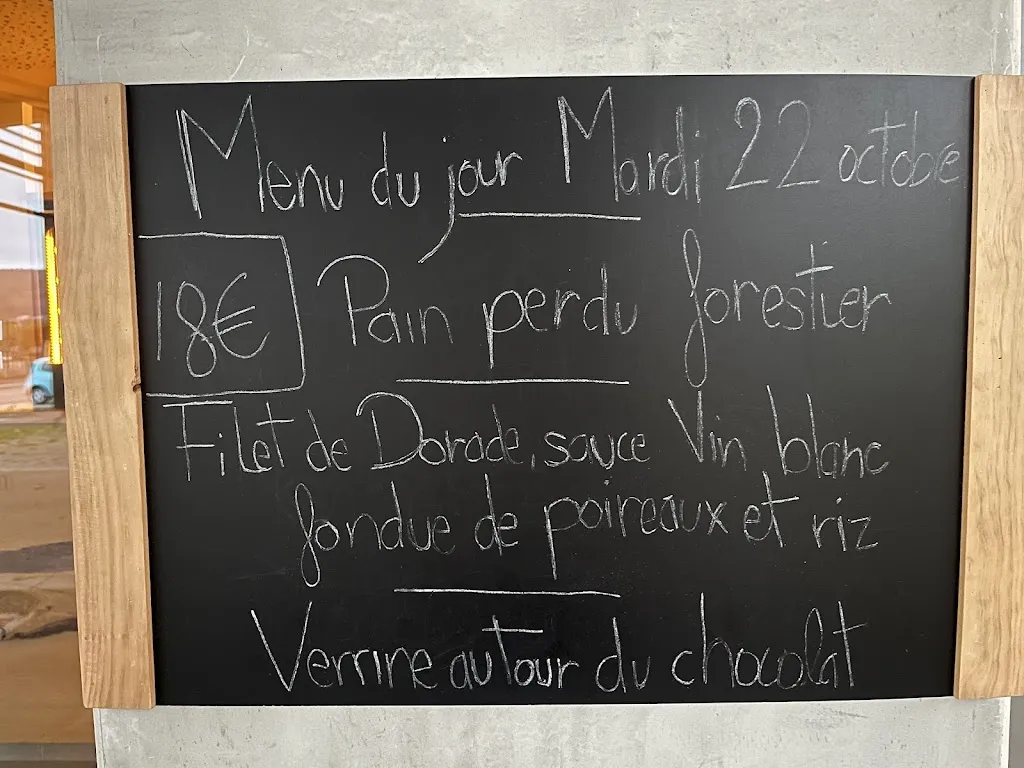 Menu du jour Mardi 22 octobre
18€ Pain perdu forestier
Filet de Dorade, sauce Vin blanc
fondue de poireaux et riz
Verrine autour du chocolat